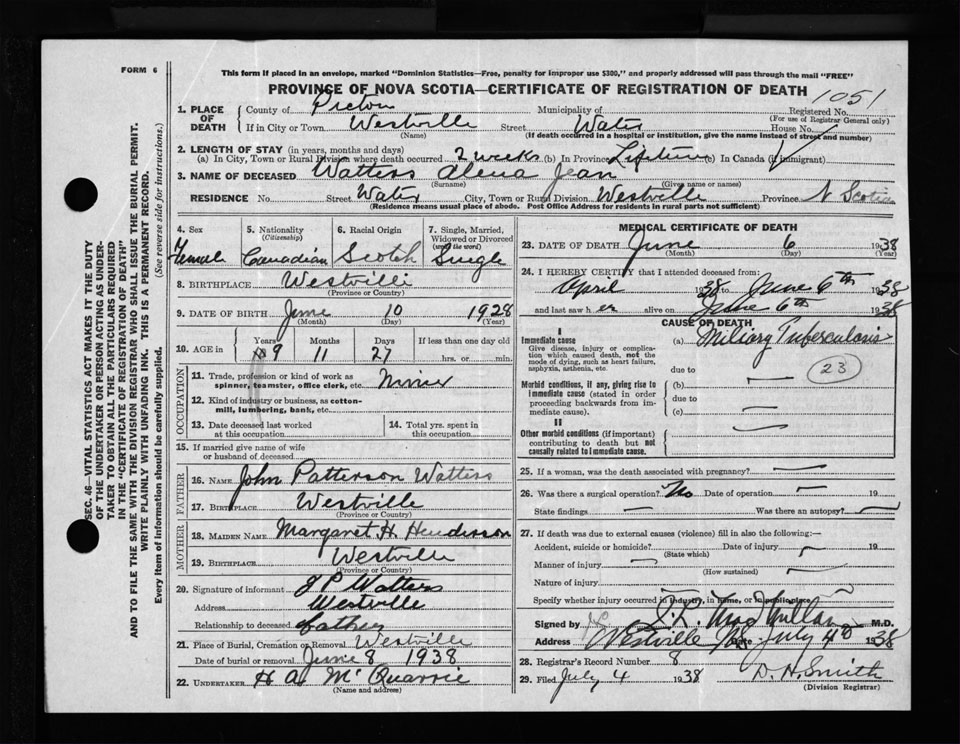 FORM 6
This form if placed in an envelope, marked "Dominion Statistics—Free, penalty for improper use $300," and properly addressed will pass through the mail "FREE"
PROVINCE OF NOVA SCOTIA—CERTIFICATE OF REGISTRATION OF DEATH
1051
1. PLACE OF DEATH County of Pictou Municipality of Registered No.
(For use of Registrar General only)
If in City or Town Westville Street Water House No.
(Name) (If death occurred in a hospital or institution, give the name instead of street and number)
2. LENGTH OF STAY (in years, months and days)
(a) In City, Town or Rural Division where death occurred 2 weeks (b) In Province Lifetime (c) In Canada (if immigrant)
3. NAME OF DECEASED Watters Alena Jean
(Surname) (Given name or names)
RESIDENCE No. Street Water City, Town or Rural Division Westville Province N Scotia
(Residence means usual place of abode. Post Office Address for residents in rural parts not sufficient)
4. Sex Female
5. Nationality (Citizenship) Canadian
6. Racial Origin Scotch
7. Single, Married, Widowed or Divorced (write the word) Single
8. BIRTHPLACE Westville
(Province or Country)
9. DATE OF BIRTH June 10 1928
(Month) (Day) (Year)
10. AGE in Years 9 Months 11 Days 27 If less than one day old hrs. or min.
OCCUPATION
11. Trade, profession or kind of work as spinner, teamster, office clerk, etc.
12. Kind of industry or business, as cotton-mill, lumbering, bank, etc.
13. Date deceased last worked at this occupation
14. Total yrs. spent in this occupation
15. If married give name of wife or husband of deceased
FATHER
16. NAME John Patterson Watters
17. BIRTHPLACE Westville
(Province or Country)
MOTHER
18. MAIDEN NAME Margaret H. Henderson
19. BIRTHPLACE Westville
(Province or Country)
20. Signature of informant J P Watters
Address Westville
Relationship to deceased father
21. Place of Burial, Cremation or Removal Westville
Date of burial or removal June 8 1938
22. UNDERTAKER H A McQuarrie
(Name and address)
MEDICAL CERTIFICATE OF DEATH
23. DATE OF DEATH June 6 1938
(Month) (Day)
24. I HEREBY CERTIFY that I attended deceased from:
April 1938 to June 6th 1938
and last saw her alive on June 6th 1938
CAUSE OF DEATH
I
Immediate cause (a) Miliary Tuberculosis
Give disease, injury or complication which caused death, not the mode of dying, such as heart failure, asphyxia, asthenia, etc.
due to
23
Morbid conditions, if any, giving rise to immediate cause (stated in order proceeding backwards from immediate cause). (b)
due to
(c)
II
Other morbid conditions (if important) contributing to death but not causally related to immediate cause.
25. If a woman, was the death associated with pregnancy?
26. Was there a surgical operation? No Date of operation 19
State findings Was there an autopsy?
27. If death was due to external causes (violence) fill in also the following:—
Accident, suicide or homicide? Date of injury 19
(State which)
Manner of injury
(How sustained)
Nature of injury
Specify whether injury occurred in industry, in home, or in public place
Signed by MacMillan M.D.
Address Westville NS Date July 4th 1938
28. Registrar's Record Number 8
29. Filed July 4 1938 D. H. Smith
(Division Registrar)
SEC. 46—VITAL STATISTICS ACT MAKES IT THE DUTY
OF THE UNDERTAKER OR PERSON ACTING AS UNDER-
TAKER TO OBTAIN ALL THE PARTICULARS REQUIRED
IN THE "CERTIFICATE OF REGISTRATION OF DEATH"
AND TO FILE THE SAME WITH THE DIVISION REGISTRAR WHO SHALL ISSUE THE BURIAL PERMIT.
WRITE PLAINLY WITH UNFADING INK. THIS IS A PERMANENT RECORD.
Every item of information should be carefully supplied. (See reverse side for instructions.)